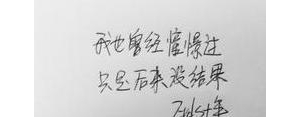 我也曾经憧憬过
只是后来没结果